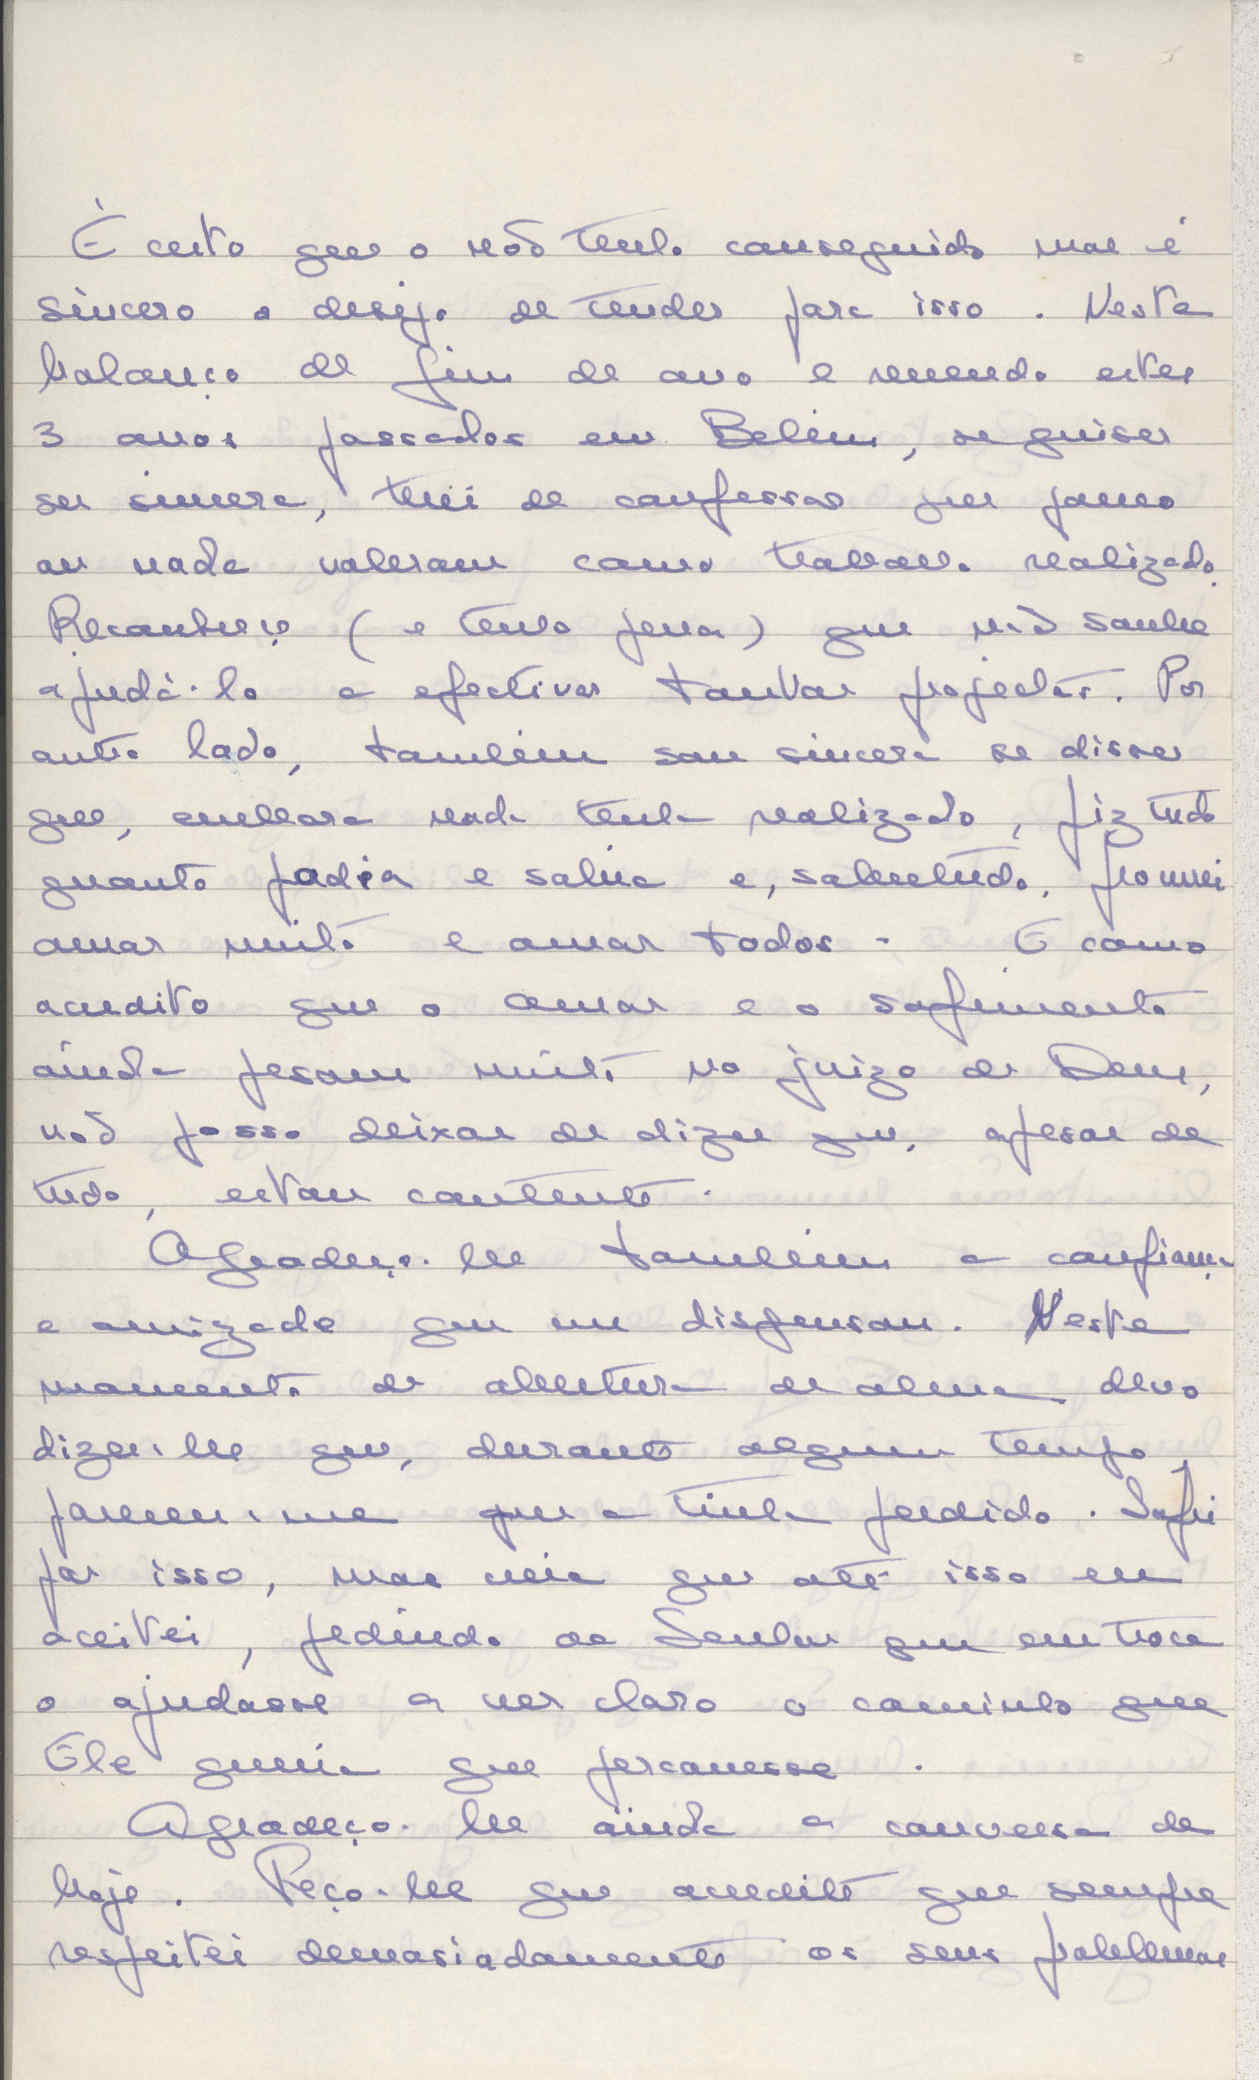 É certo que o não tenho conseguido mas é
sincero o desejo de tender para isso. Neste
balanço de fim de ano e revendo estes
3 anos passados em Belém, se quiser
ser sincera, terei de confessar que pouco
ou nada valeram como trabalho realizado.
Reconheço (e tenho pena) que não soube
ajudá-lo a efectivar tantos projectos. Por
outro lado, também sou sincera se disser
que, embora nada tenha realizado, fiz tudo
quanto podia e sabia e, sobretudo, procurei
amar muito e amar todos. E como
acredito que o amor e o sofrimento
ainda pesam muito no juizo de Deus,
não posso deixar de dizer que, apesar de
tudo, estou contente.
Agradeço-lhe também a confiança
e amizade que me dispensou. Neste
momento de abertura de alma devo
dizer-lhe que, durante algum tempo,
pareceu-me que a tinha perdido. Sofri
por isso, mas creia que até isso eu
aceitei, pedindo ao Senhor que em troca
o ajudasse a ver claro o caminho que
Ele queria que percorresse.
Agradeço-lhe ainda a conversa de
hoje. Peço-lhe que acredite que sempre
respeitei demasiadamente os seus problemas